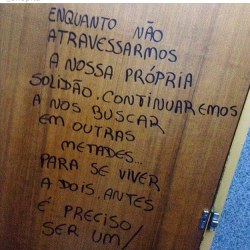 ENQUANTO NÃO
ATRAVESSARMOS
A NOSSA PRÓPRIA
SOLIDÃO. CONTINUAREMOS
A NOS BUSCAR
EM OUTRAS
METADES...
PARA SE VIVER
A DOIS, ANTES
É PRECISO
SER UM/